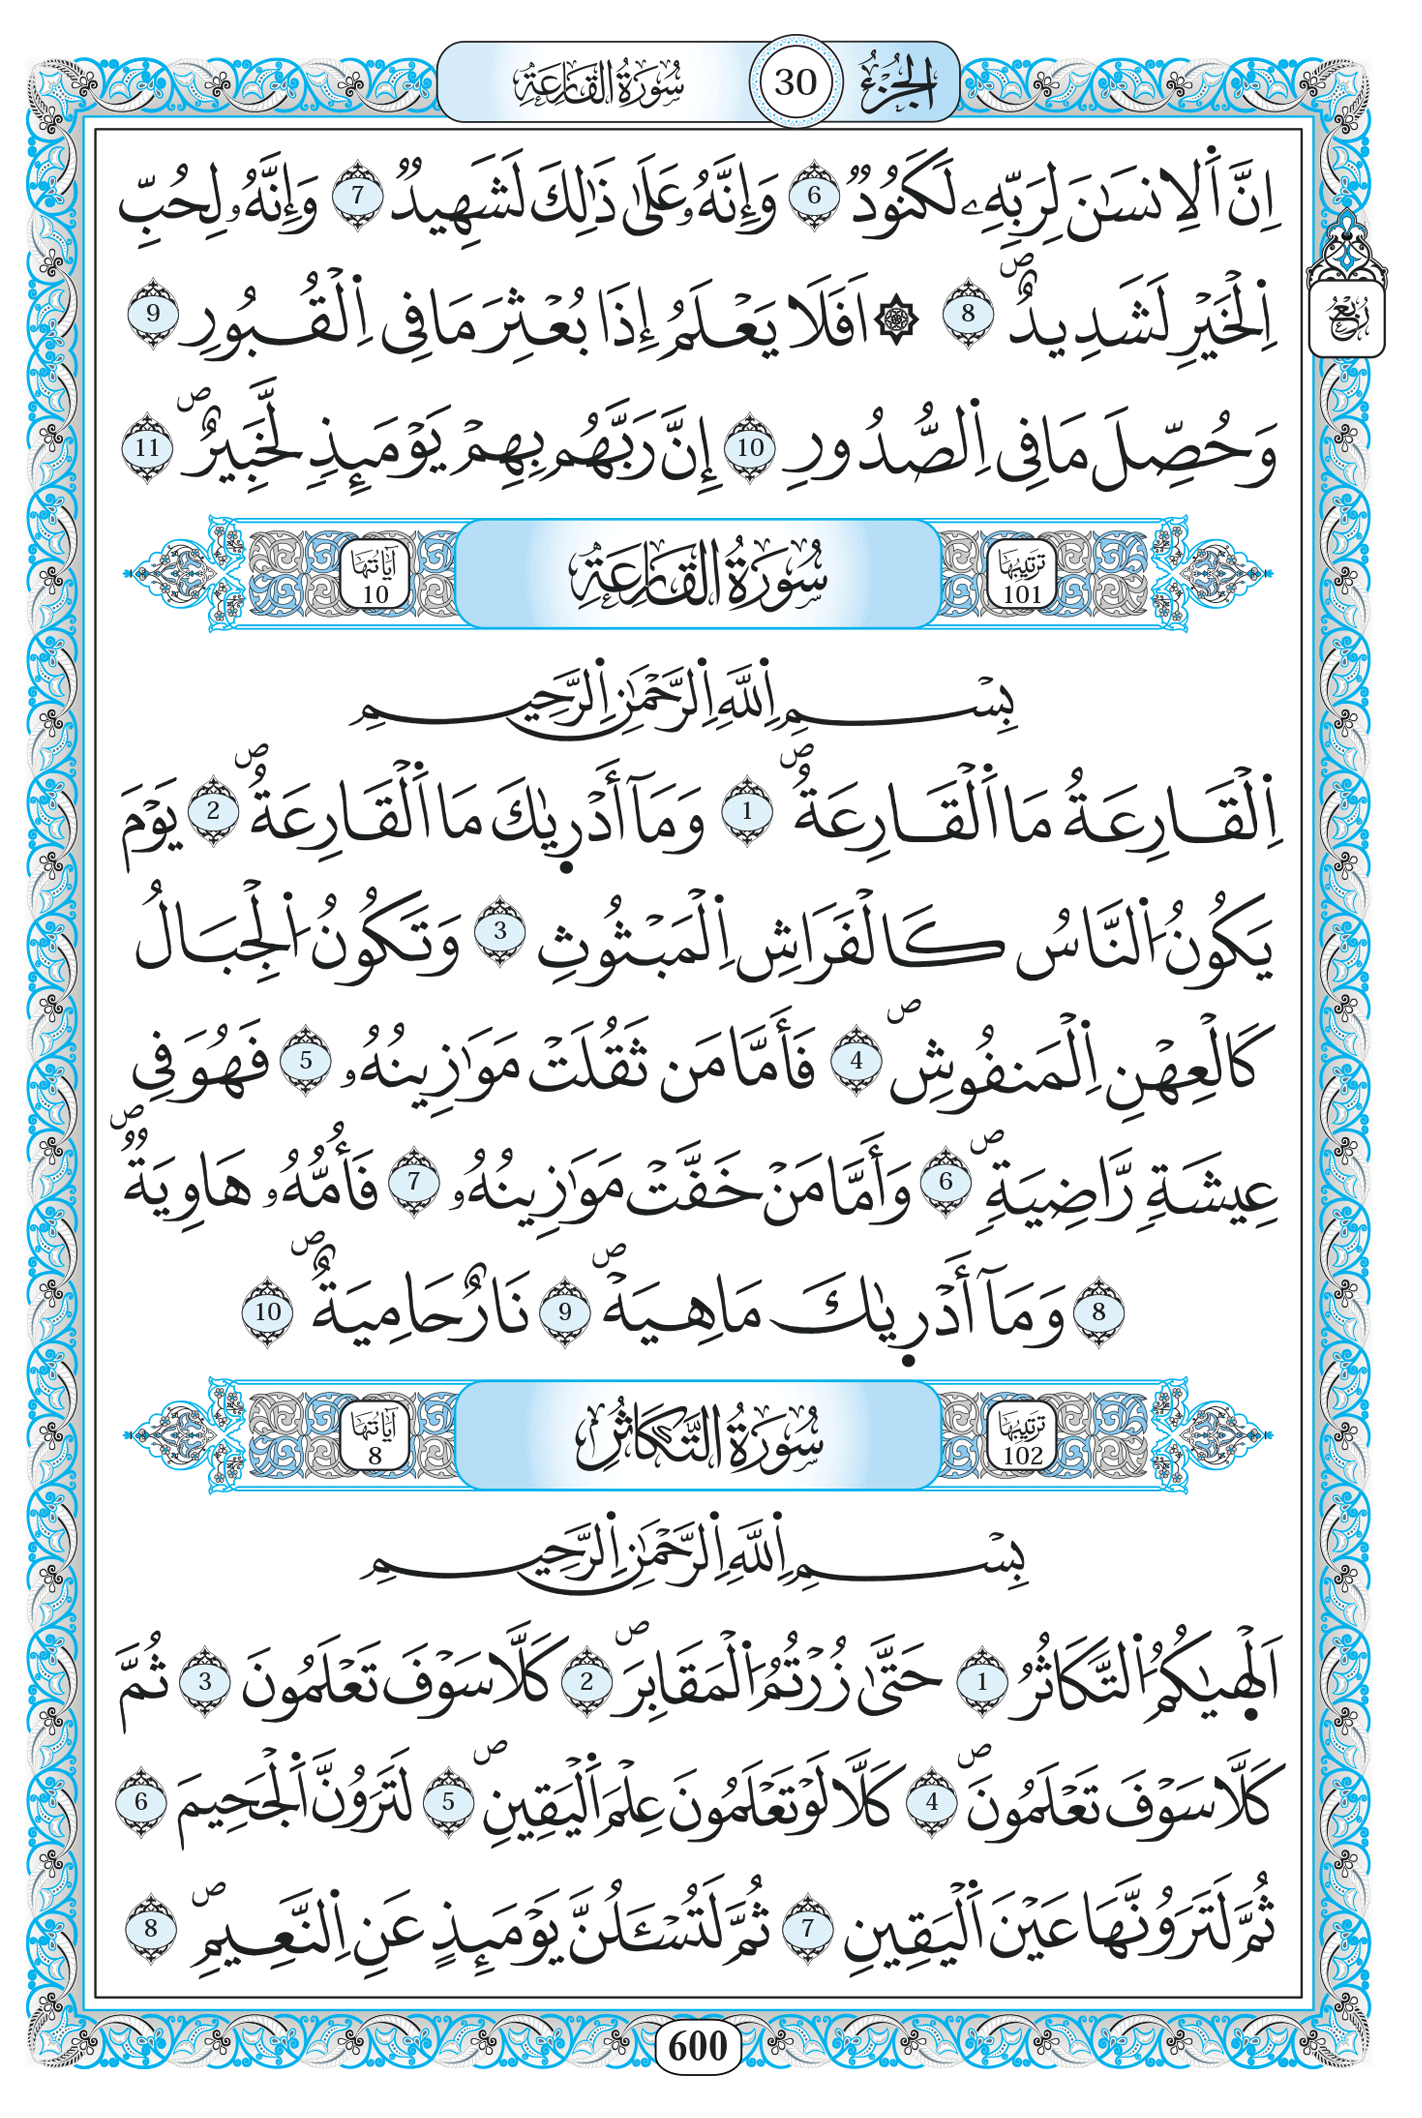 الجزء 30 سورة القارعة
اِنَّ اَ۬لِانسَٰنَ لِرَبِّهِۦ لَكَنُودٞ 6 وَإِنَّهُۥ عَلَىٰ ذَٰلِكَ لَشَهِيدٞ 7 وَإِنَّهُۥ لِحُبِّ
اِ۬لْخَيْرِ لَشَدِيدٌۖ 8 ۞ اَفَلَا يَعْلَمُ إِذَا بُعْثِرَ مَا فِى اِ۬لْقُبُورِ 9
ربع
وَحُصِّلَ مَا فِى اِ۬لصُّدُورِ 10 إِنَّ رَبَّهُم بِهِمْ يَوْمَئِذٖ لَّخَبِيرٌۖ 11
ترتيبها 101 سورة القارعة آياتها 10
بِسْمِ اِ۬للَّهِ اِ۬لرَّحْمَٰنِ اِ۬لرَّحِيمِ
اِ۬لْقَارِعَةُ مَا اَ۬لْقَارِعَةُۖ 1 وَمَآ أَدْر۪يٰكَ مَا اَ۬لْقَارِعَةُۖ 2 يَوْمَ
يَكُونُ اُ۬لنَّاسُ كَالْفَرَاشِ اِ۬لْمَبْثُوثِ 3 وَتَكُونُ اُ۬لْجِبَالُ
كَالْعِهْنِ اِ۬لْمَنفُوشِۖ 4 فَأَمَّا مَن ثَقُلَتْ مَوَٰزِينُهُۥ 5 فَهُوَ فِى
عِيشَةٖ رَّاضِيَةٖۖ 6 وَأَمَّا مَنْ خَفَّتْ مَوَٰزِينُهُۥ 7 فَأُمُّهُۥ هَاوِيَةٞۖ
8 وَمَآ أَدْر۪يٰكَ مَا هِيَهْۖ 9 نَارٌ حَامِيَةٌۖ 10
ترتيبها 102 سورة التكاثر آياتها 8
بِسْمِ اِ۬للَّهِ اِ۬لرَّحْمَٰنِ اِ۬لرَّحِيمِ
اَلْه۪يٰكُمُ اُ۬لتَّكَاثُرُ 1 حَتَّىٰ زُرْتُمُ اُ۬لْمَقَابِرَۖ 2 كَلَّا سَوْفَ تَعْلَمُونَ 3 ثُمَّ
كَلَّا سَوْفَ تَعْلَمُونَۖ 4 كَلَّا لَوْ تَعْلَمُونَ عِلْمَ اَ۬لْيَقِينِۖ 5 لَتَرَوُنَّ اَ۬لْجَحِيمَ 6
ثُمَّ لَتَرَوُنَّهَا عَيْنَ اَ۬لْيَقِينِ 7 ثُمَّ لَتُسْـَٔلُنَّ يَوْمَئِذٍ عَنِ اِ۬لنَّعِيمِۖ 8
600